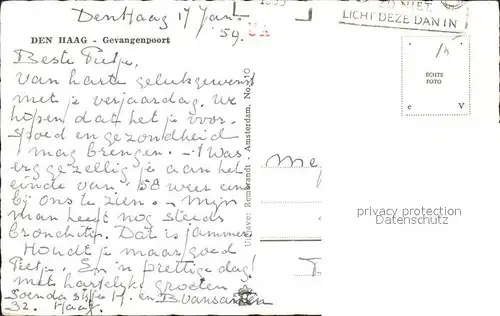 Den Haag 17 Jan.
'59.
ZO NIET,
LICHT DEZE DAN IN
DEN HAAG - Gevangenpoort
Beste Pietje,
Van harte gelukgewenst
met je verjaardag. We
hopen dat het je voor-
spoed en gezondheid
mag brengen. - 't Was
erg gezellig je aan het
einde van '58 weer eens
bij ons te zien. - Mijn
man heeft nog steeds
bronchitis. Dat is jammer.
Houdt je maar goed
Pietje. En 'n prettige dag!
met hartelijke groeten
H. en B. Vansanten
32. Haag.
Uitgever: Rembrandt - Amsterdam, No.
ECHTE
FOTO
e V
Me
privacy protection
Datenschutz